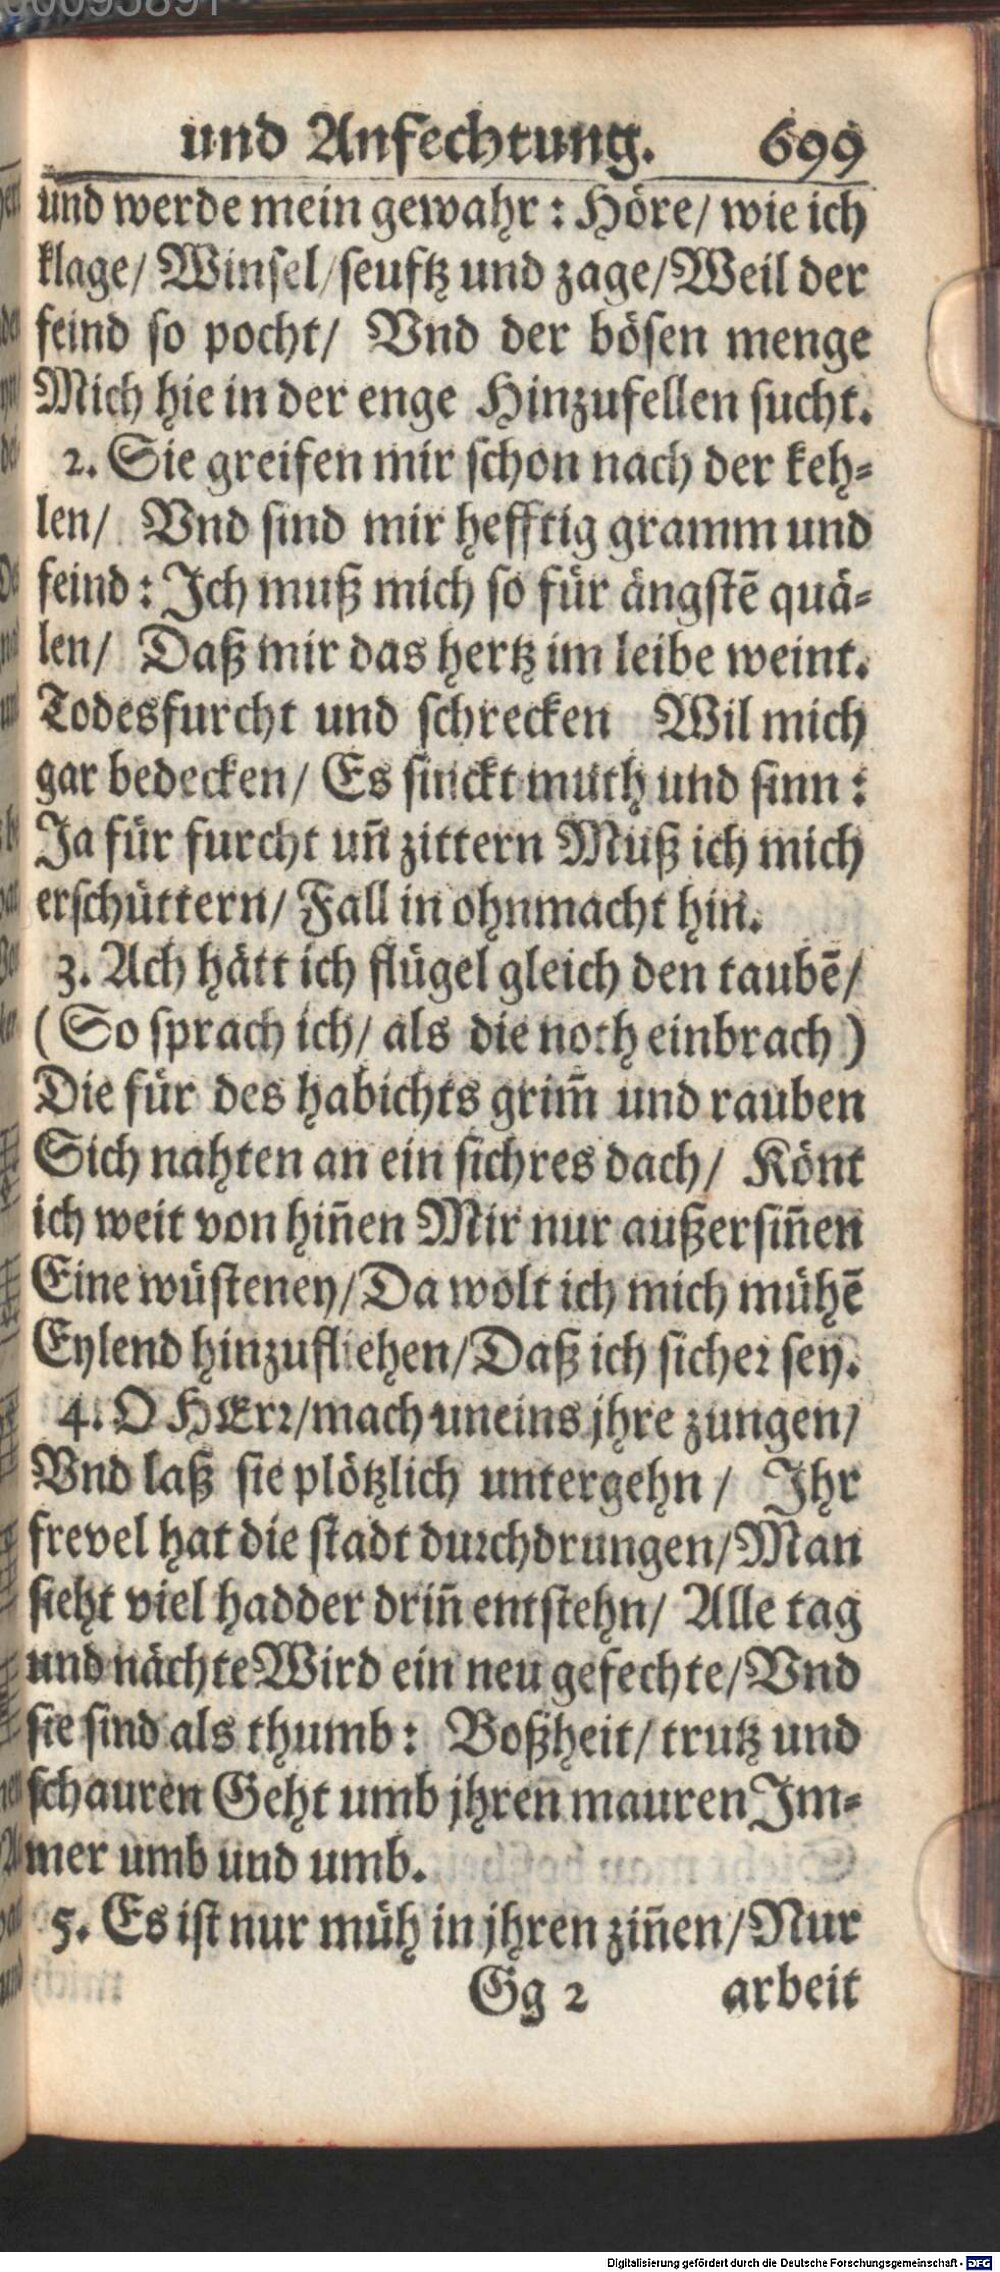 und Anfechtung. 699
und werde mein gewahr : Höre/ wie ich
klage/ Winsel/ seuftz und zage/ Weil der
feind so pocht/ Vnd der bösen menge
Mich hie in der enge Hinzufellen sucht.
2. Sie greifen mir schon nach der keh-
len/ Vnd sind mir hefftig gramm und
feind : Ich muß mich so für ängstē quä-
len/ Daß mir das hertz im leibe weint.
Todesfurcht und schrecken Wil mich
gar bedecken/ Es sinckt muth und sinn :
Ja für furcht un̄ zittern Muß ich mich
erschüttern/ Fall in ohnmacht hin.
3. Ach hätt ich flügel gleich den taubē/
( So sprach ich/ als die noth einbrach )
Die für des habichts grim̄ und rauben
Sich nahten an ein sichres dach/ Könt
ich weit von hin̄en Mir nur außersin̄en
Eine wüsteney/ Da wolt ich mich mühē
Eylend hinzufliehen/ Daß ich sicher sey.
4. O HErr/ mach uneins jhre zungen/
Vnd laß sie plötzlich untergehn / Ihr
frevel hat die stadt durchdrungen/ Man
sieht viel hadder drin̄ entstehn/ Alle tag
und nächte Wird ein neu gefechte/ Vnd
sie sind als thumb : Boßheit/ trutz und
schauren Geht umb jhren mauren Im-
mer umb und umb.
5. Es ist nur müh in jhren zin̄en/ Nur
Gg 2 arbeit
Digitalisierung gefördert durch die Deutsche Forschungsgemeinschaft - DFG